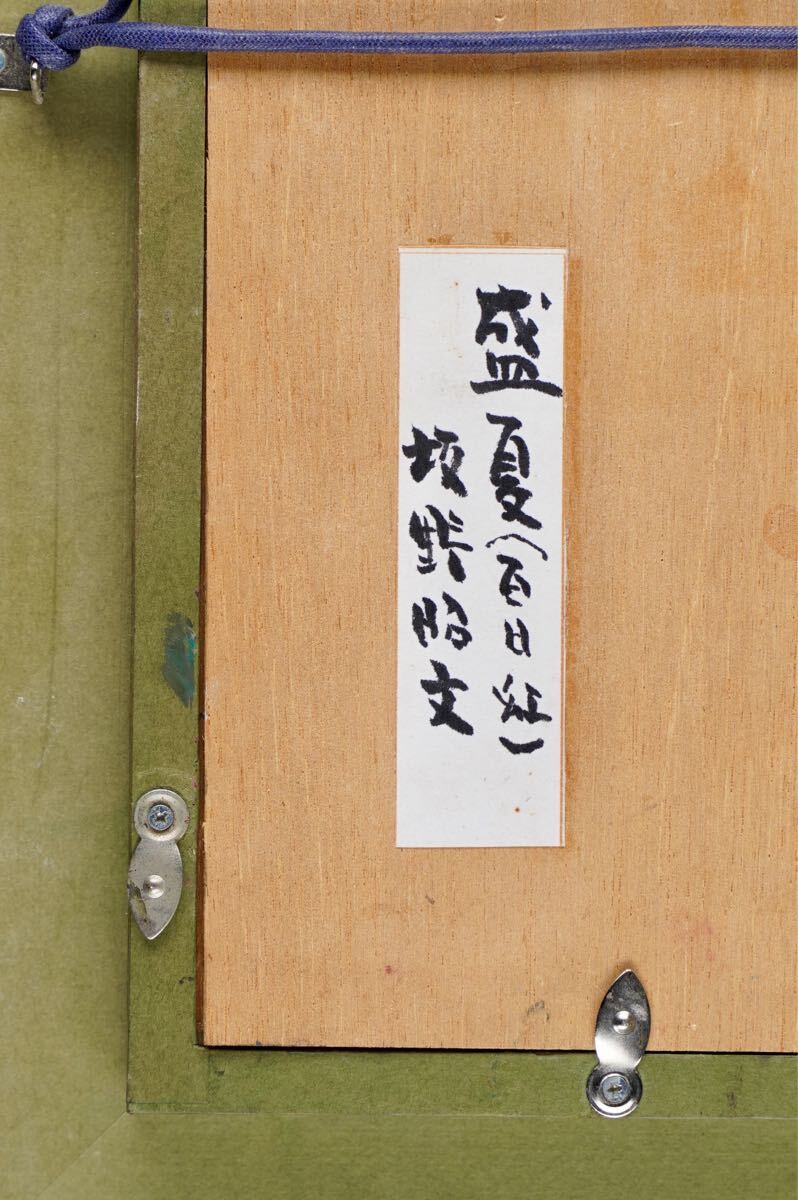 盛夏(百日紅)
坂野昭文